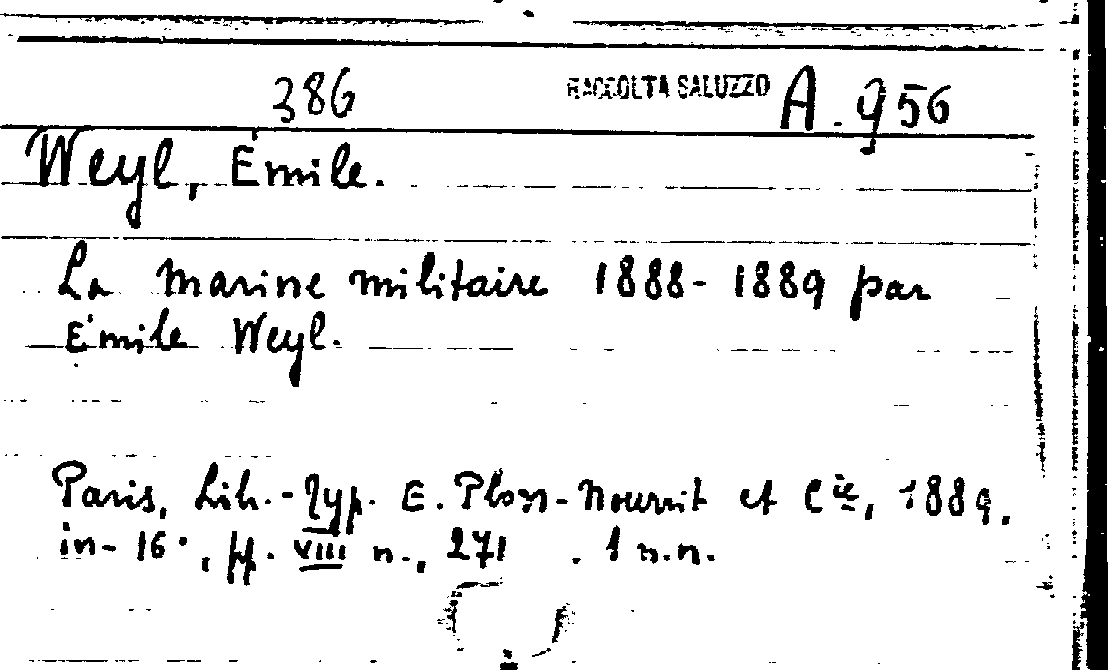 386 RACCOLTA SALUZZO A. 956
Weyl, Émile.
La marine militaire 1888-1889 par
Émile Weyl.
Paris, Lib.-Typ. E. Plon-Nourrit et Cie, 1889.
in-16°, pp. VIII n., 271 . 1 n.n.